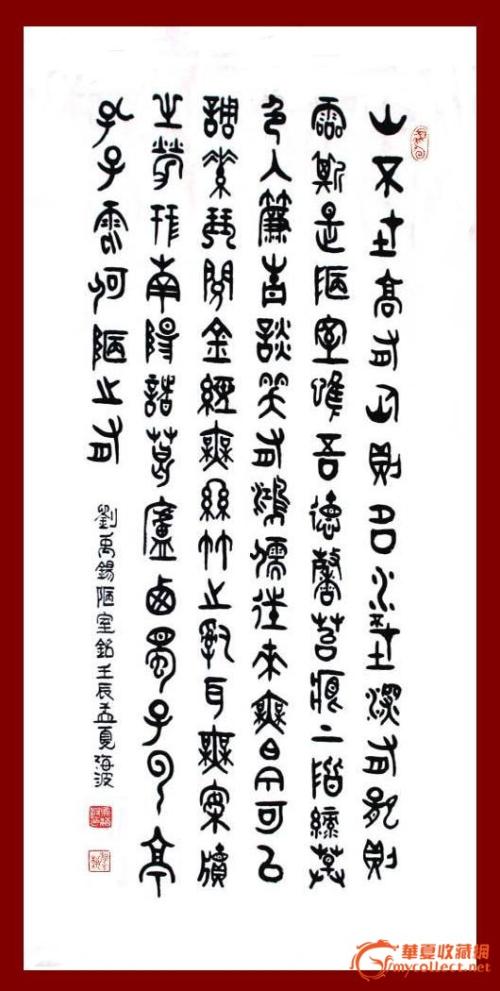 山不在高有仙則名水不在深有龍則
靈斯是陋室唯吾德馨苔痕上階綠草
色入簾青談笑有鴻儒往來無白丁可以
調素琴閱金經無絲竹之亂耳無案牘
之勞形南陽諸葛廬西蜀子云亭
孔子雲何陋之有
劉禹錫陋室銘壬辰孟夏海波
華夏收藏網
mycollect.net